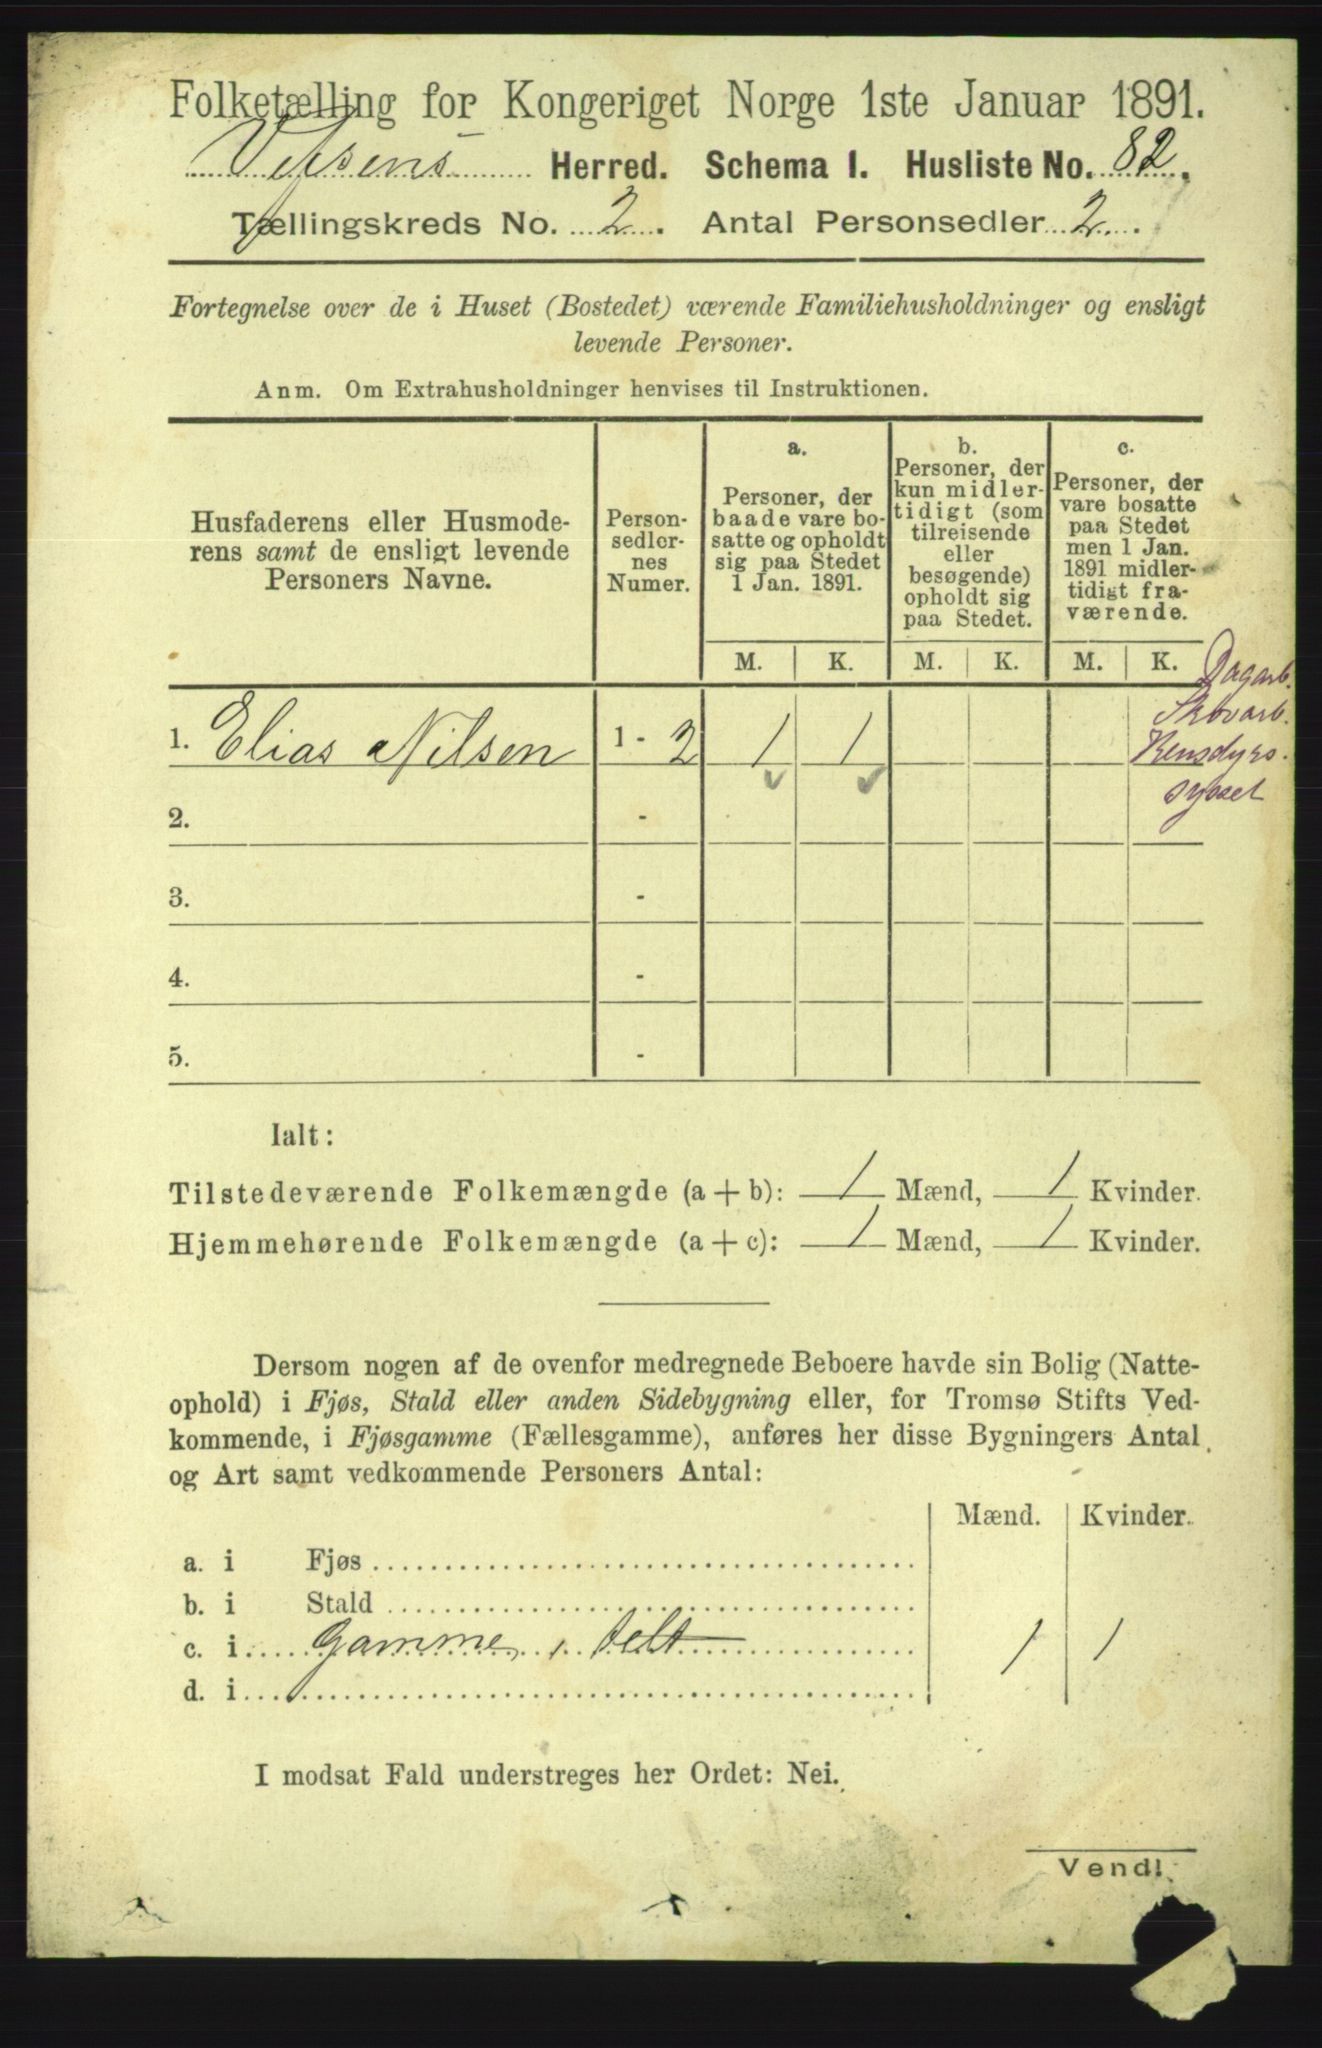 Folketælling for Kongeriget Norge 1ste Januar 1891.
Vefsens Herred. Schema I. Husliste No. 82.
Tællingskreds No. 2. Antal Personsedler 2.
Fortegnelse over de i Huset (Bostedet) værende Familiehusholdninger og ensligt
levende Personer.
Anm. Om Extrahusholdninger henvises til Instruktionen.
Husfaderens eller Husmode-
rens samt de ensligt levende
Personers Navne.
Person-
sedler-
nes
Numer.
a.
Personer, der
baade vare bo-
satte og opholdt
sig paa Stedet
1 Jan. 1891.
b.
Personer, der
kun midler-
tidigt (som
tilreisende
eller
besøgende)
opholdt sig
paa Stedet.
c.
Personer, der
vare bosatte
paa Stedet
men 1 Jan.
1891 midler-
tidigt fra-
værende.
M. K. M. K. M. K.
Dagarb.
Skovarb.
Rensdyrs.
syssel
1. Elias Nilsen 1 - 2 1 1
2. -
3. -
4. -
5. -
Ialt:
Tilstedeværende Folkemængde (a + b): 1 Mænd, 1 Kvinder.
Hjemmehørende Folkemængde (a + c): 1 Mænd, 1 Kvinder.
Dersom nogen af de ovenfor medregnede Beboere havde sin Bolig (Natte-
ophold) i Fjøs, Stald eller anden Sidebygning eller, for Tromsø Stifts Ved-
kommende, i Fjøsgamme (Fællesgamme), anføres her disse Bygningers Antal
og Art samt vedkommende Personers Antal:
Mænd. Kvinder.
a. i Fjøs
b. i Stald
c. i Gamme, i telt 1 1
d. i
I modsat Fald understreges her Ordet: Nei.
Vend!